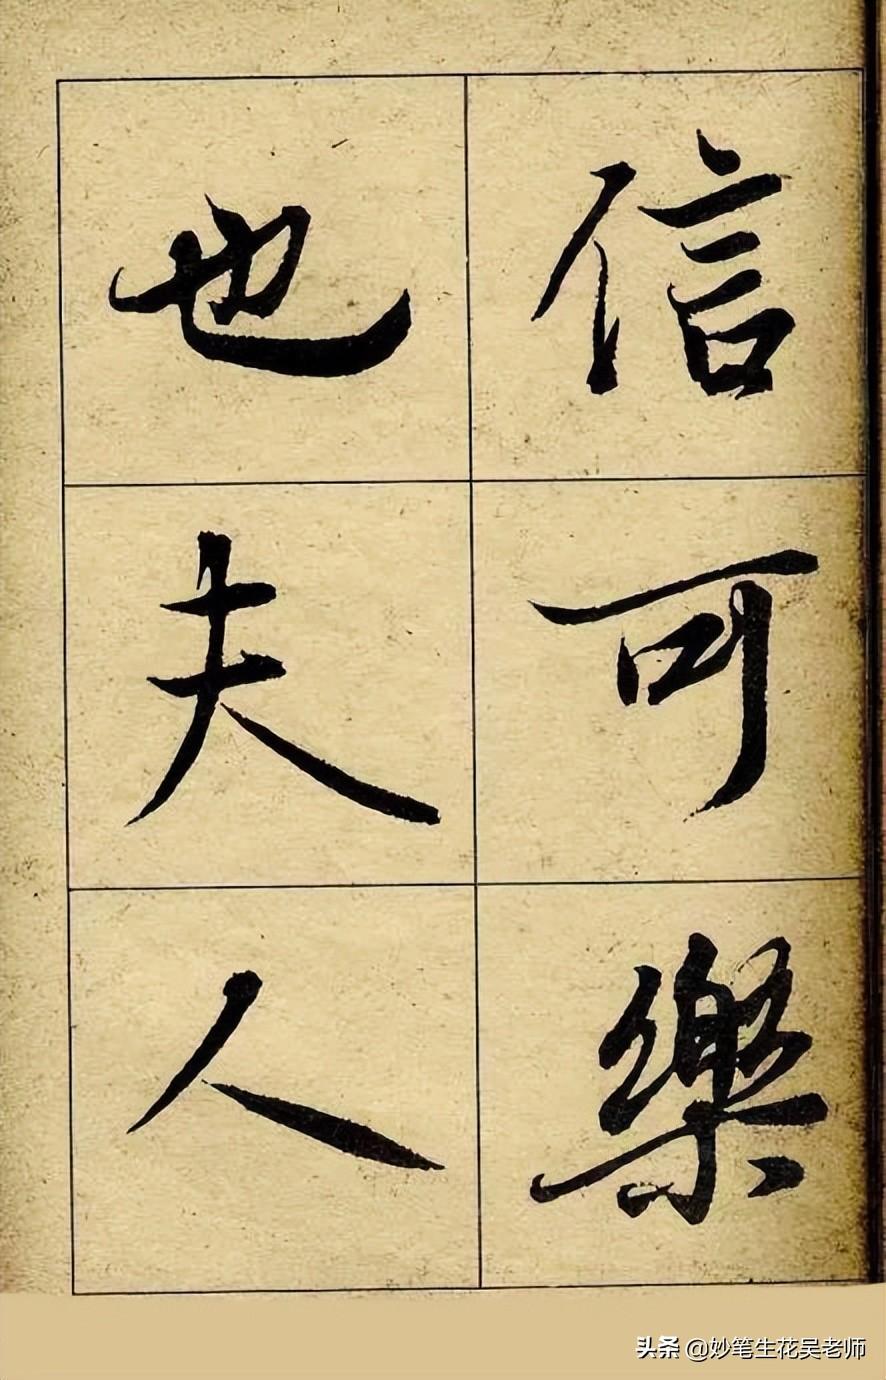 信可樂
也夫人
头条 @妙笔生花吴老师